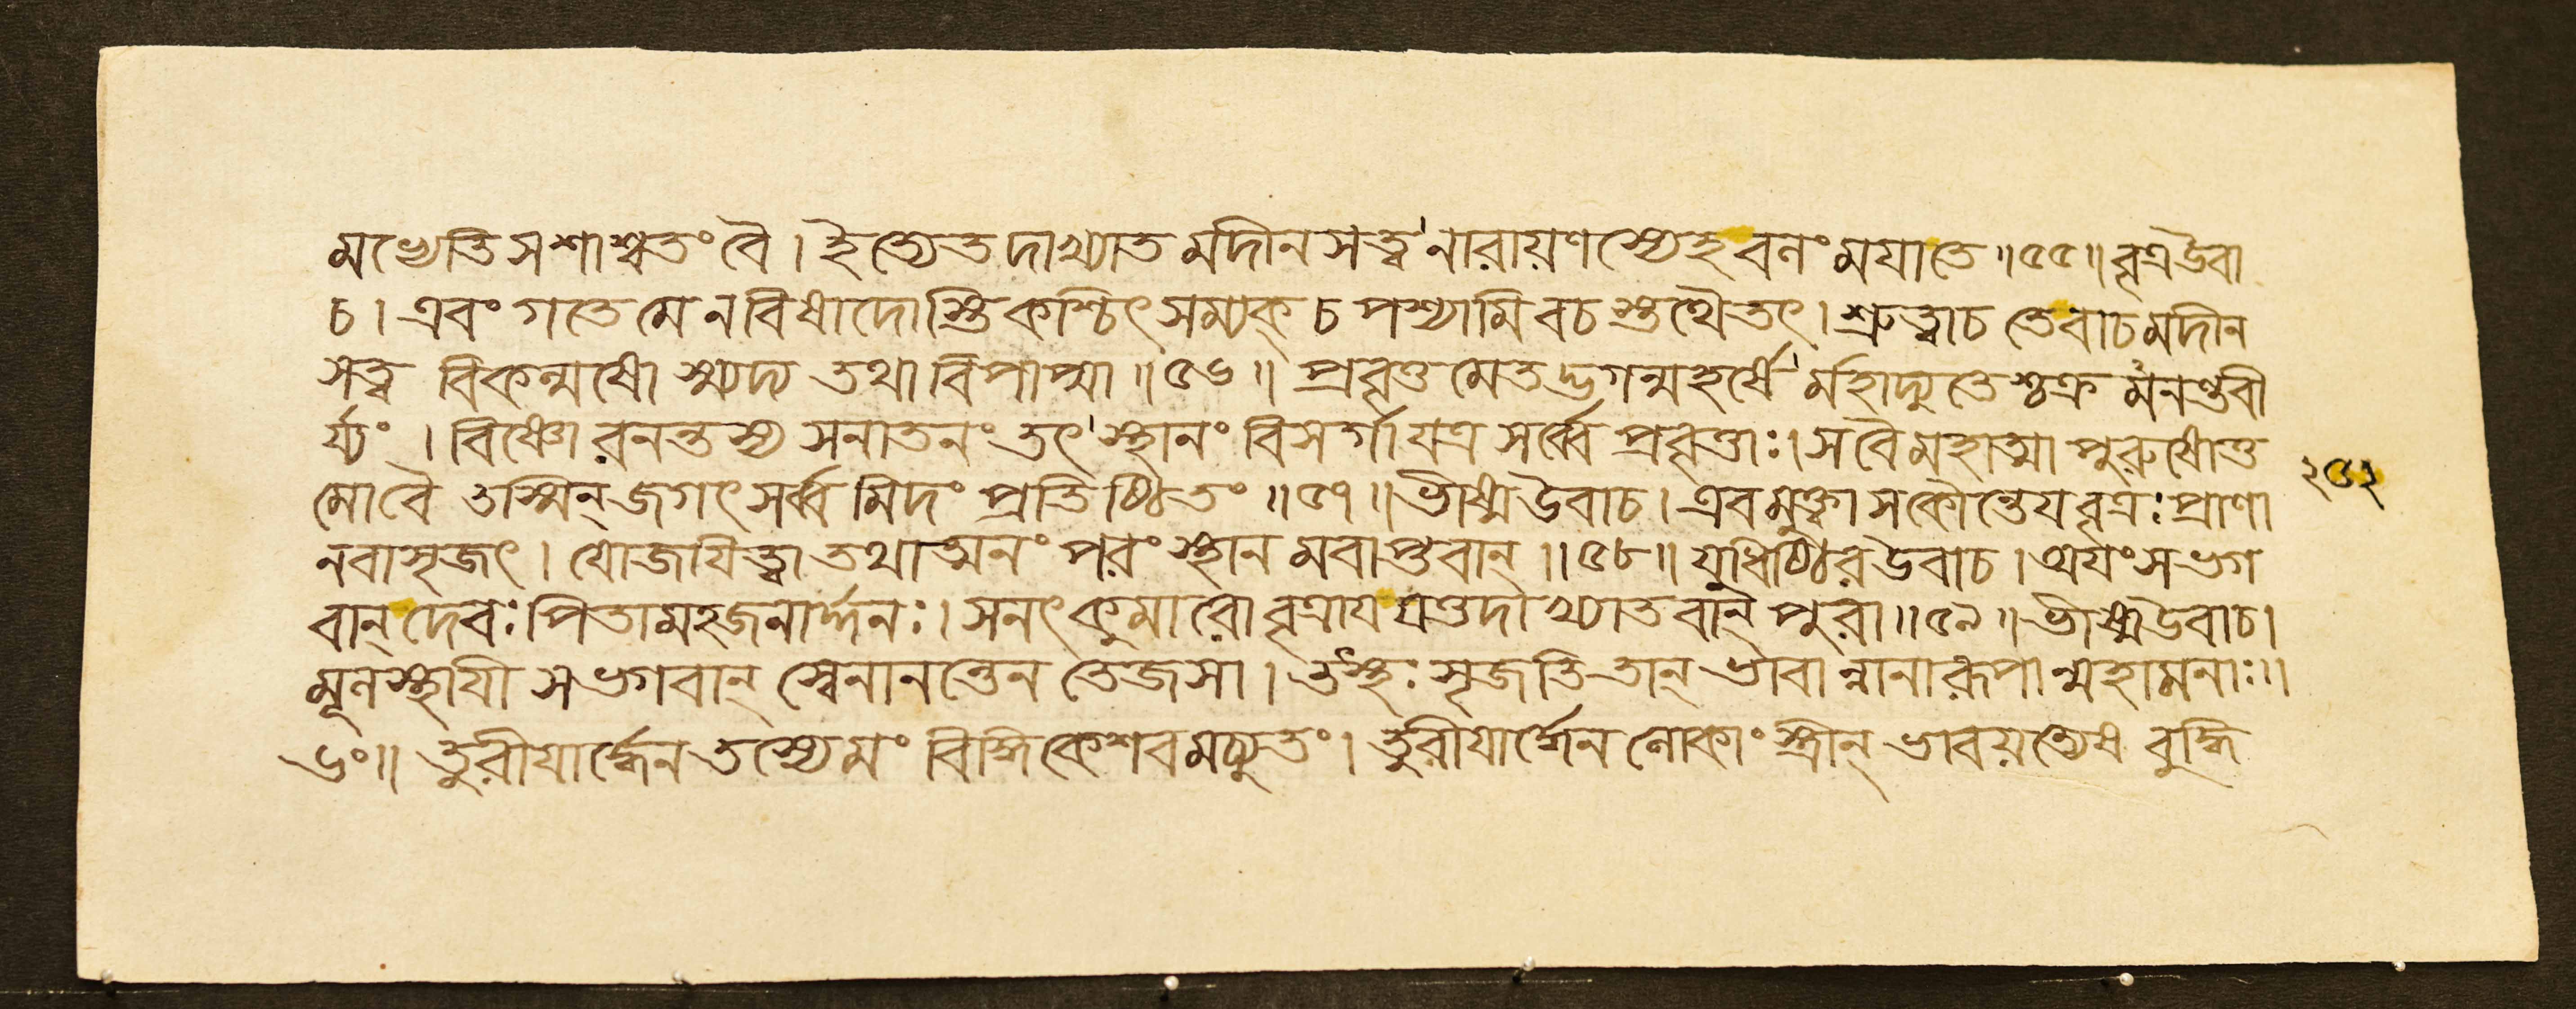 মভ্যেতি স শাশ্বতং বৈ । ইত্যেতদাখ্যাতমদীনসত্ত্ব নারায়ণস্যেহ বলং ময়া তে ॥ ৫৫ ॥ বৃত্র উবা
চ । এবং গতে মে ন বিষাদোস্তি কশ্চিৎ সম্যক্ চ পশ্যামি বচস্তথৈতৎ । শ্রুত্বা চ তে বাচমদীন
সত্ত্ব বিকল্মষোস্ম্যদ্য তথা বিপাপ্মা ॥ ৫৬ ॥ প্রবৃত্তমেতদ্ভগবন্মহর্ষে মহাদ্যুতেশ্চক্রমনন্তবী
র্য্যং । বিষ্ণোরনন্তস্য সনাতনং তৎ স্থানং বিসর্গা যত্র সর্ব্বে প্রবৃত্তাঃ । স বৈ মহাত্মা পুরুষোত্ত
মো বৈ তস্মিন্ জগৎ সর্ব্বমিদং প্রতিষ্ঠিতং ॥ ৫৭ ॥ ভীষ্ম উবাচ । এবমুক্ত্বা স কৌন্তেয় বৃত্রঃ প্রাণা
নবাসৃজৎ । যোজয়িত্বা তথাত্মনং পরং স্থানমবাপ্তবান্ ॥ ৫৮ ॥ যুধিষ্ঠির উবাচ । অয়ং স ভগ
বান্ দেবঃ পিতামহ জনার্দ্দনঃ । সনৎকুমারো বৃত্রায় যত্তদাখ্যাতবান্ পুরা ॥ ৫৯ ॥ ভীষ্ম উবাচ ।
মূলস্থায়ী স ভগবান্ স্বেনানন্তেন তেজসা । তৎস্থঃ সৃজতি তান্ ভাবান্নানারূপান্মহামনাঃ ॥
৬০ ॥ তুরীয়ার্দ্ধেন তস্যেমং বিদ্ধি কেশবমচ্যুতং । তুরীয়ার্দ্ধেন লোকাংস্ত্রীন্ ভাবয়ত্যেষ বুদ্ধি
২৫২